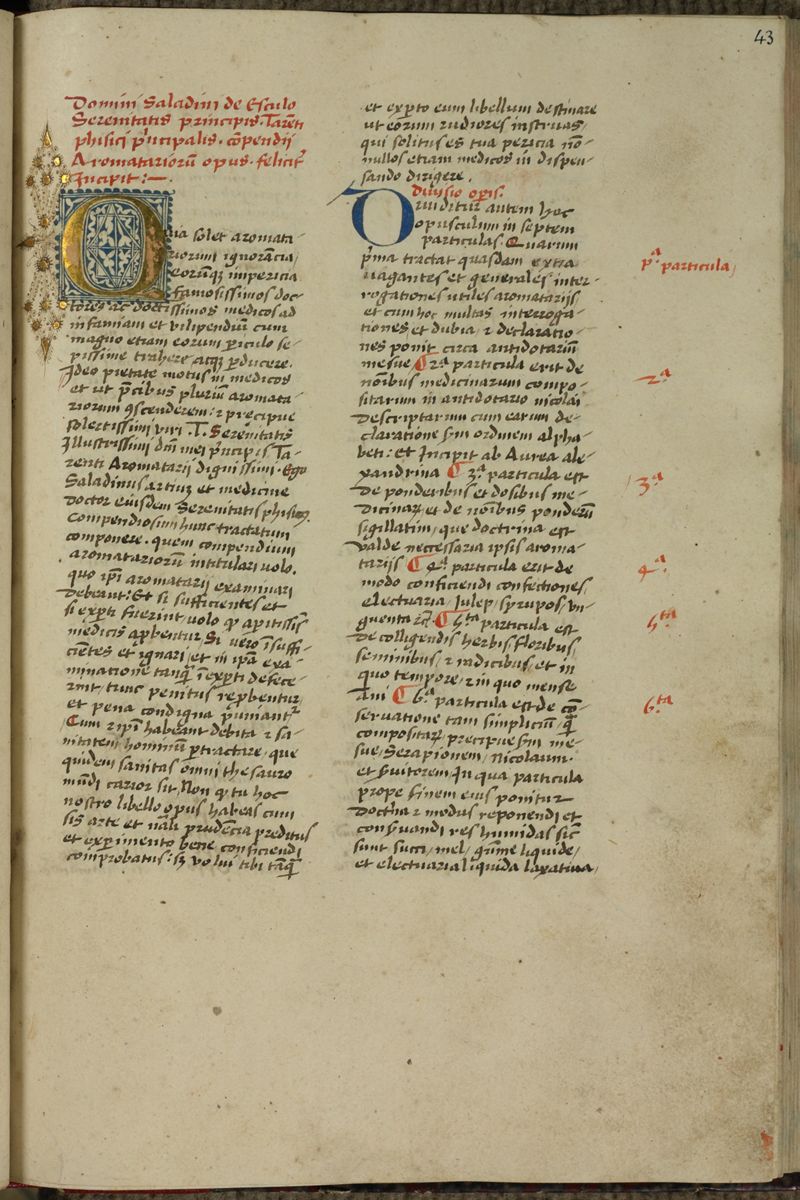 43
Domini Saladini de Esculo
Serenitatis principis. Tarēti
phisici p̄ncipalis. cōpendij
Aromatariorū opus. felicit̄
Incipit :—
Quia solet aromata-
riorum ignorācia,
eorūq̧ impericia
famosissimos doc-
tores ac doctissimos medicos ad
infamiam et vilipendiū cum
magno etiam eorum ꝑiculo se-
pissime trahere atq̧ ꝑducere.
Ideo pietate motus in medicos
et ut p̄cibus pluriū aromata-
riorum ꝯscenderem: ⁊ precipue
solertissimi viri .T. Serenitatis
Illustrissimi dn̄i mei p̄ncipis Ta-
renti Aromatarij dignissimi. Ego
Saladinus artiuȝ et medicine
doctor eiusdem Serenitatis phisicꝰ
Compendiosum hunc tractatum
componere. quem compendium
aromatariorū intitulari uolo.
quo ip̄i aromatarij examinari
debeant: Et si sufficientes et
si exꝑti fuerint uolo ꝙ a peritissīs
medicis aꝓbentur. Si uero īsuffi-
ciētes et ignari, et in ip̄a exa-
minatione tanq̄ īexꝑti defece-
rint, tunc penitus reꝓbentur,
et pena condigna puniant̄
Cum ⁊ ip̄i habeant debita ⁊ sa-
nitatem hominū ꝑtractare, que
quidem sanitas omni thesauro
mūdi carior sit. Non ꝙ tu hoc
nostro libello opus habeas cum
sis arte et nāli prudēcia preditus
et exꝑimento bene conficiendi
comprobatus: sȝ volui tibi tāq̄
et exꝑto eum libellum destinare
ut eorum rudiores instruas,
qui solitus es tua pericia nō-
nullos etiam medicos in dispen-
sando dirigere.
Diuisio oꝑis.
Diuiditur autem hoc
opusculum in septem
particulas. Quarum
p̄ma tractat quasdam extra
uagantes et generales inter-
rogationes utiles aromatarijs
et cum hoc multas interroga-
tiones et dubia, ⁊ declaratio-
nes ponit circa antidotariū
mesue ¶ 2ᵃ particula erit de
noībus medicinarum compo-
sitarum in antidotario nicolai
descriptarum cum earum de-
claratione sm̄ ordinem alpha-
beti: et Incipit ab Aurea ale-
xandrina ¶ 3ᵃ particula est
de ponderibus et dosibus me-
dicinaꝝ et de noībus ponderū
sigillatim, que doctrina est
valde necessaria ipsis aroma-
tarijs ¶ 4ᵃ particula erit de
modo conficiendi confectiones,
electuaria, Julep, syrupos, vn-
guenta ⁊cᵃ. ¶ 5ᵗᵃ particula est
de colligendis herbis floribus,
seminibus, ⁊ radicibus, et in
quo tempore, ⁊ in quo mense
Ani ¶ 6ᵃ particula est de cō-
seruatione tam simpliciū q̄
compositaꝝ precipue sm̄ me-
sue, Serapionem, Nicolaum.
et Suitorem, In qua particula
prope finem eius ponitur
doctrīa ⁊ modus reponendi et
conseruandi res humidas sic̄
sunt succi, mel, gūme liquide,
et electuaria liquida laxatiua,
pᵃ particula,
2ᵃ
3ᵃ
4ᵃ
5ᵗᵃ
6ᵗᵃ